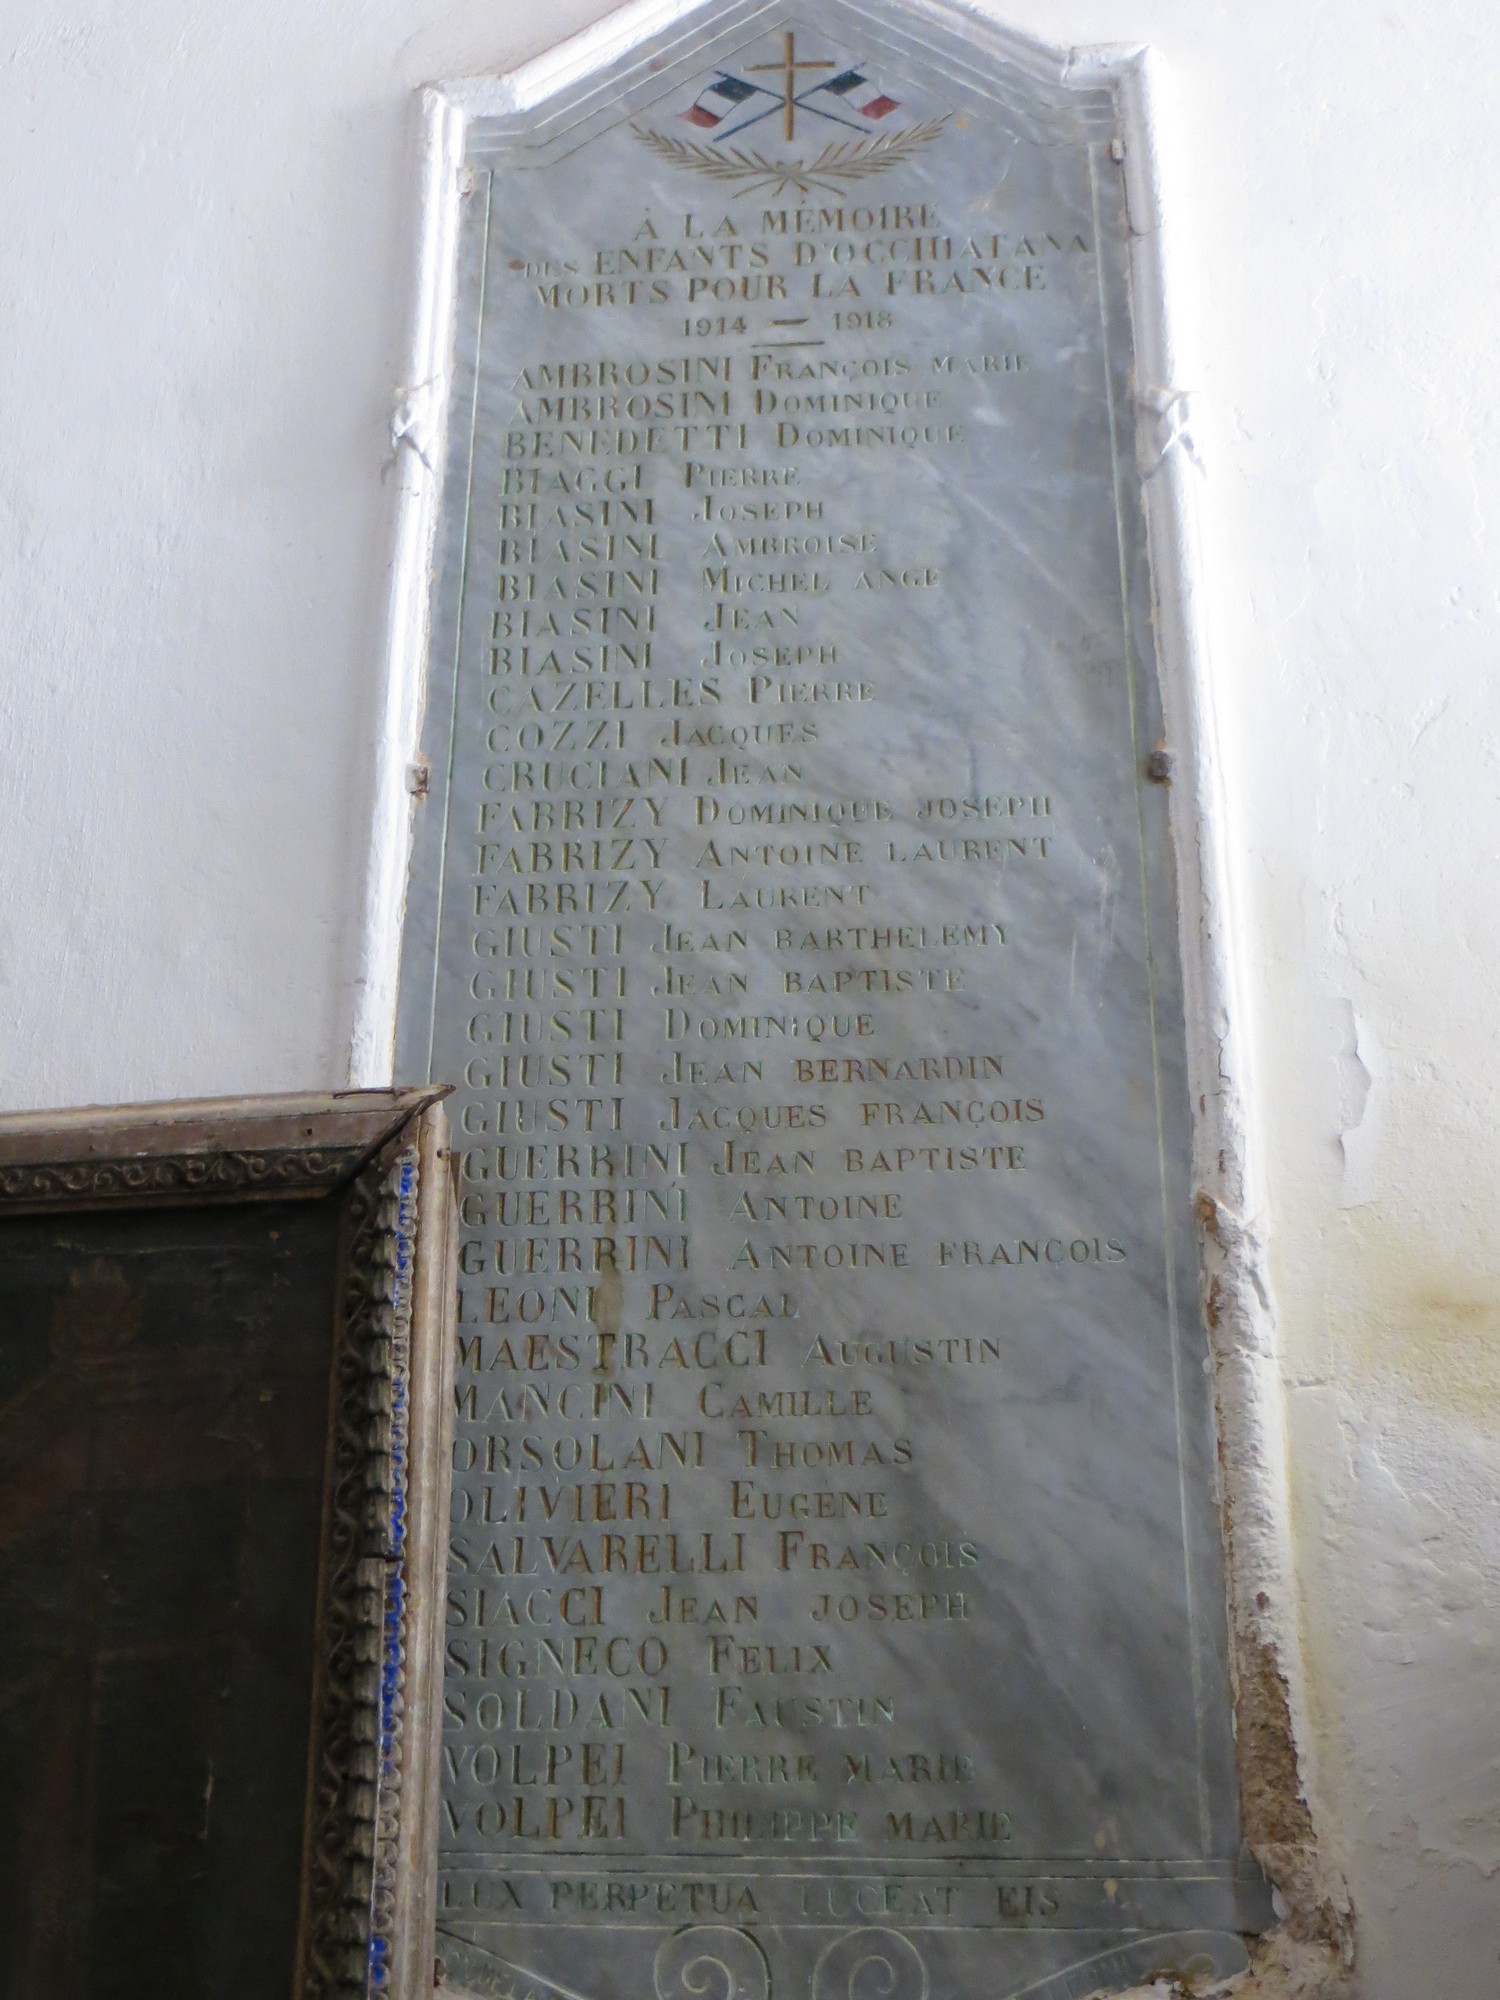 À LA MÉMOIRE
DES ENFANTS D'OCCHIATANA
MORTS POUR LA FRANCE
1914 — 1918
AMBROSINI FRANÇOIS MARIE
AMBROSINI DOMINIQUE
BENEDETTI DOMINIQUE
BIAGGI PIERRE
BIASINI JOSEPH
BIASINI AMBROISE
BIASINI MICHEL ANGE
BIASINI JEAN
BIASINI JOSEPH
CAZELLES PIERRE
COZZI JACQUES
CRUCIANI JEAN
FABRIZY DOMINIQUE JOSEPH
FABRIZY ANTOINE LAURENT
FABRIZY LAURENT
GIUSTI JEAN BARTHELEMY
GIUSTI JEAN BAPTISTE
GIUSTI DOMINIQUE
GIUSTI JEAN BERNARDIN
GIUSTI JACQUES FRANÇOIS
GUERRINI JEAN BAPTISTE
GUERRINI ANTOINE
GUERRINI ANTOINE FRANÇOIS
LEONI PASCAL
MAESTRACCI AUGUSTIN
MANCINI CAMILLE
ORSOLANI THOMAS
OLIVIERI EUGÈNE
SALVARELLI FRANÇOIS
SIACCI JEAN JOSEPH
SIGNECO FELIX
SOLDANI FAUSTIN
VOLPEI PIERRE MARIE
VOLPEI PHILIPPE MARIE
LUX PERPETUA LUCEAT EIS